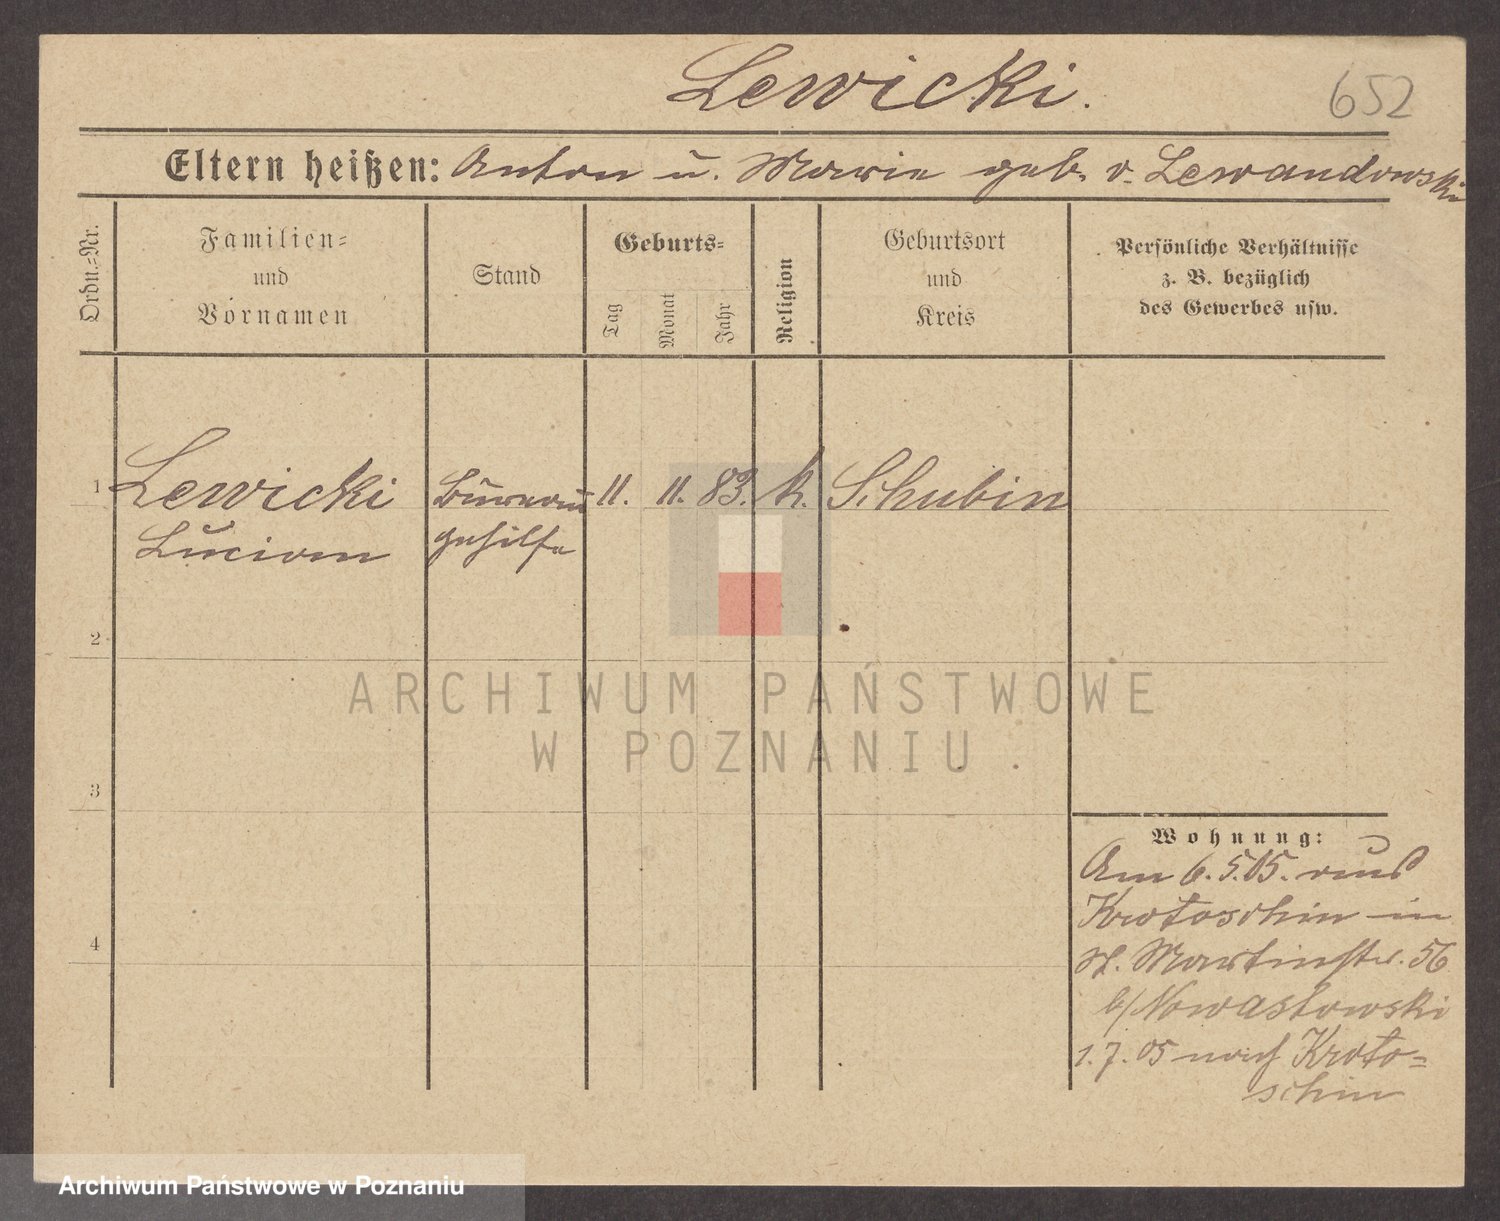 Lewicki.
652
Eltern heißen: Anton u. Marie geb. v. Lewandowski
Ordn.-Nr.
Familien-
und
Vornamen
Stand
Geburts-
Tag
Monat
Jahr
Religion
Geburtsort
und
Kreis
Persönliche Verhältnisse
z. B. bezüglich
des Gewerbes usw.
1 Lewicki Bureau 11. 11. 83. k. Schubin
Lucian gehilfe
2
ARCHIWUM PAŃSTWOWE
W POZNANIU
3
Wohnung:
Am 6.5.05. aus
Krotoschin in
4
St. Martinstr. 56
b/Nowastowski
1.7.05 nach Kroto=
schin
Archiwum Państwowe w Poznaniu